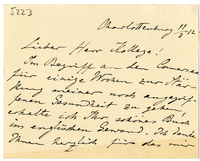 5223
Charlottenburg 11/3 12
Lieber Herr Kollege!
Im Begriff an den Comersee
für einige Wochen zur Stär-
kung meiner noch angegrif-
fenen Gesundheit zu gehen
erhalte ich Ihr schönes Buch
im englischen Gewand. Ich danke
Ihnen herzlich für das mir